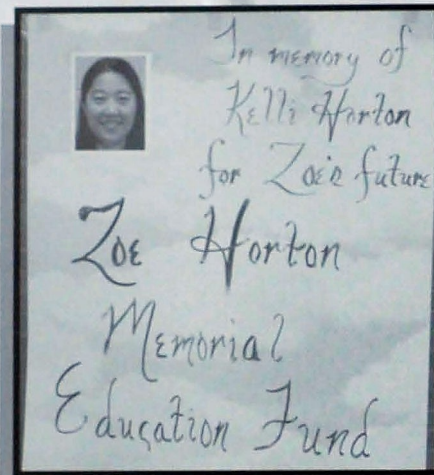 In memory of
Kelli Horton
for Zoe's future
Zoe Horton
Memorial
Education Fund